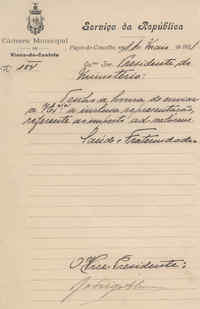 Serviço da Republica
Camara Municipal
DE
Vianna-do-Castello
Paços do Concelho, de Maio de 191
Exmo Snr. Presidente do
Ministerio:
Tenho a honra de enviar
a V. Exa a inclusa representação,
referente ao imposto ad valorem.
Saude e Fraternidade
O Vice-Presidente: